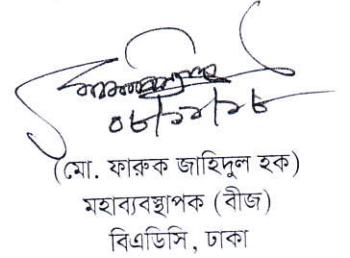 ০৮/১২/১৮
(মো. ফারুক জাহিদুল হক)
মহাব্যবস্থাপক (বীজ)
বিএডিসি, ঢাকা